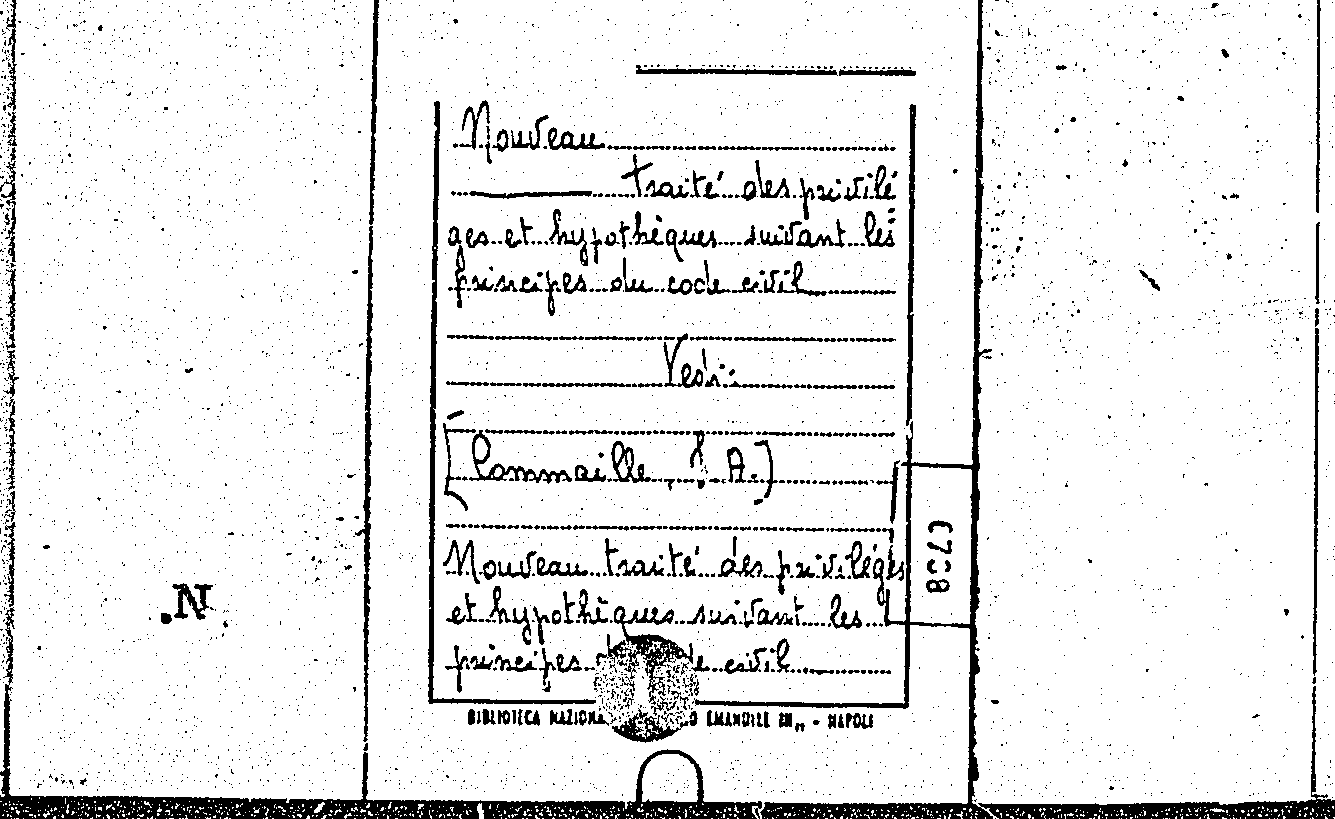 Nouveau
traité des privilé
ges et hypothèques suivant les
principes du code civil
Vedi:
[Commaille, J. A.]
Nouveau traité des privilèges
et hypothèques suivant les
principes civil
BIBLIOTECA EMANUELE III„ - NAPOLI
N.